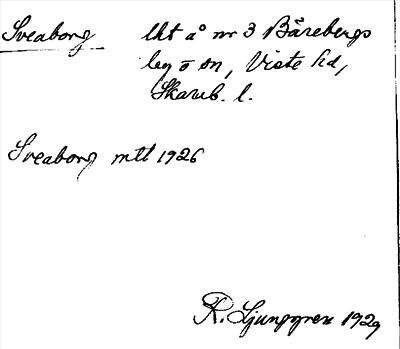 Sveaborg lht å nr 3 Bärebergs
by o sn, Viste hd,
Skarab. l.
Sveaborg mtl 1926
R. Ljunggren 1929